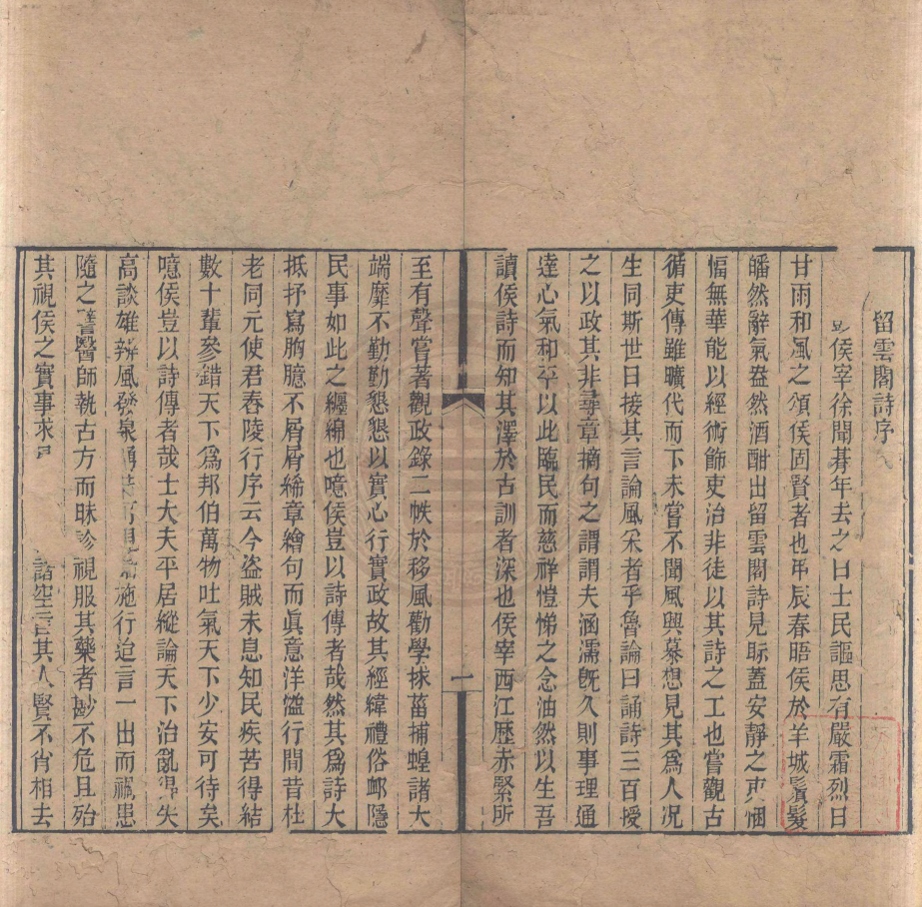 留雲閣詩序
侯宰徐聞朞年去之日士民謳思有嚴霜烈日
甘雨和風之頌侯固賢者也甲辰春晤侯於羊城鬒髮
皤然辭氣盎然酒酣出留雲閣詩見眎蓋安靜之吏悃
愊無華能以經術飾吏治非徒以其詩之工也嘗觀古
循吏傳雖曠代而下未嘗不聞風興慕想見其爲人况
生同斯世日接其言論風采者乎魯論曰誦詩三百授
之以政其非尋章摘句之謂謂夫涵濡旣久則事理通
達心氣和平以此臨民而慈祥愷悌之念油然以生吾
讀侯詩而知其澤於古訓者深也侯宰西江歷赤緊所
至有聲嘗著觀政錄二帙於移風勸學捄菑捕蝗諸大
端靡不勤勤懇懇以實心行實政故其經緯禮俗䘏隱
民事如此之纒綿也噫侯豈以詩傳者哉然其爲詩大
抵抒寫胸臆不屑屑絺章繪句而眞意洋溢行間昔杜
老同元使君舂陵行序云今盜賊未息知民疾苦得結
數十輩參錯天下爲邦伯萬物吐氣天下少安可待矣
噫侯豈以詩傳者哉士大夫平居縱論天下治亂得失
高談雄辨風發泉湧施行迨言一出而禍患
隨之醫師執古方而昧診視服其藥者尠不危且殆
其視侯之實事求諸空言其人賢不肖相去
一